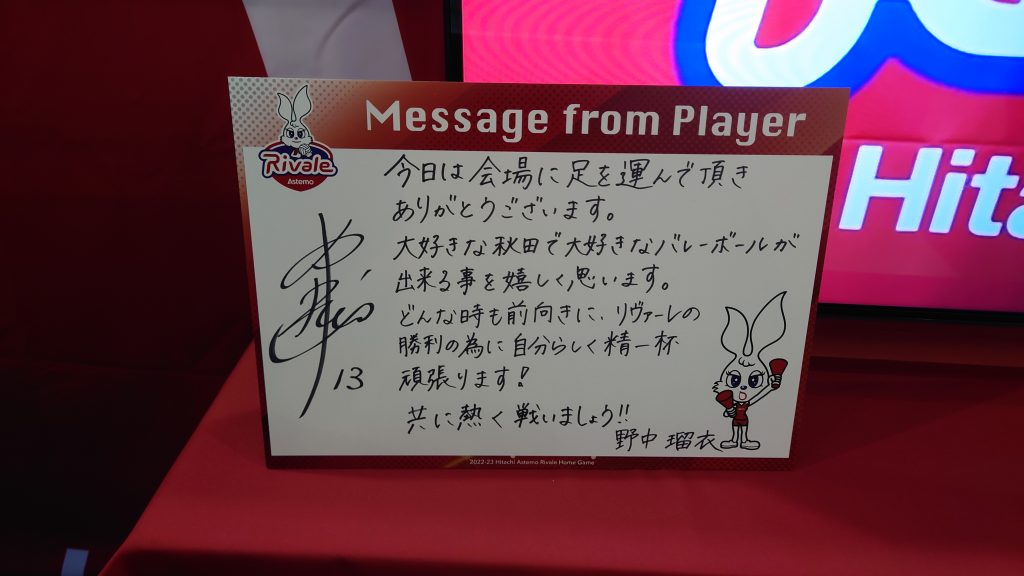 Message from Player
Rivale
Astemo
今日は会場に足を運んで頂き
ありがとうございます。
大好きな秋田で大好きなバレーボールが
出来る事を嬉しく思います。
どんな時も前向きに、リヴァーレの
勝利の為に自分らしく精一杯
頑張ります!
共に熱く戦いましょう!!
野中 瑠衣
13
2022-23 Hitachi Astemo Rivale Home Game
Hita